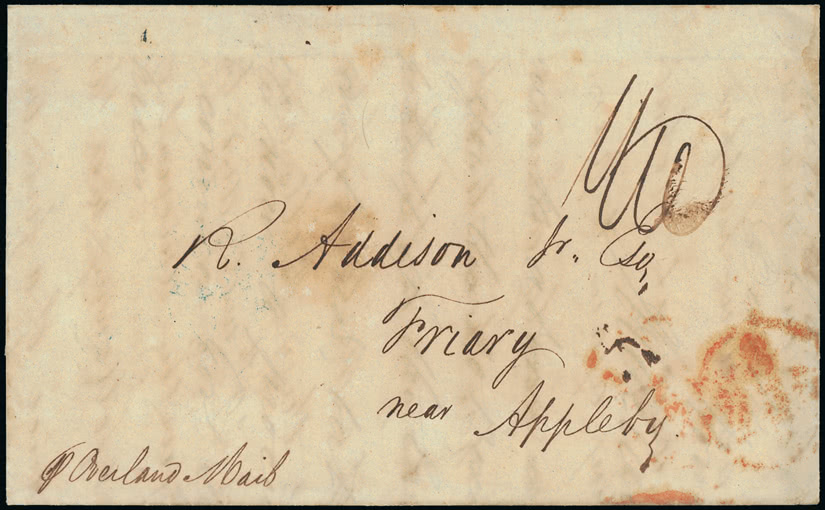 R. Addison Jr. Esq,
Friary
near Appleby.
P Overland Mail